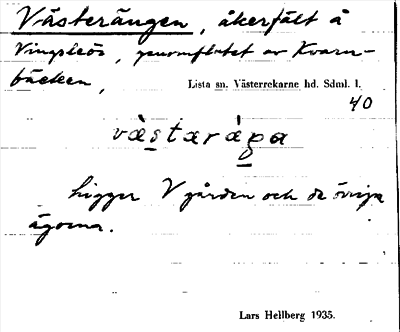 Västerängen, åkerfält å
Vingsleör, genomflutet av Kvarn-
bäcken,
Lista sn. Västerrekarne hd. Sdml. l.
40
västaräŋa
Ligger V gården och de övriga
ägorna.
Lars Hellberg 1935.